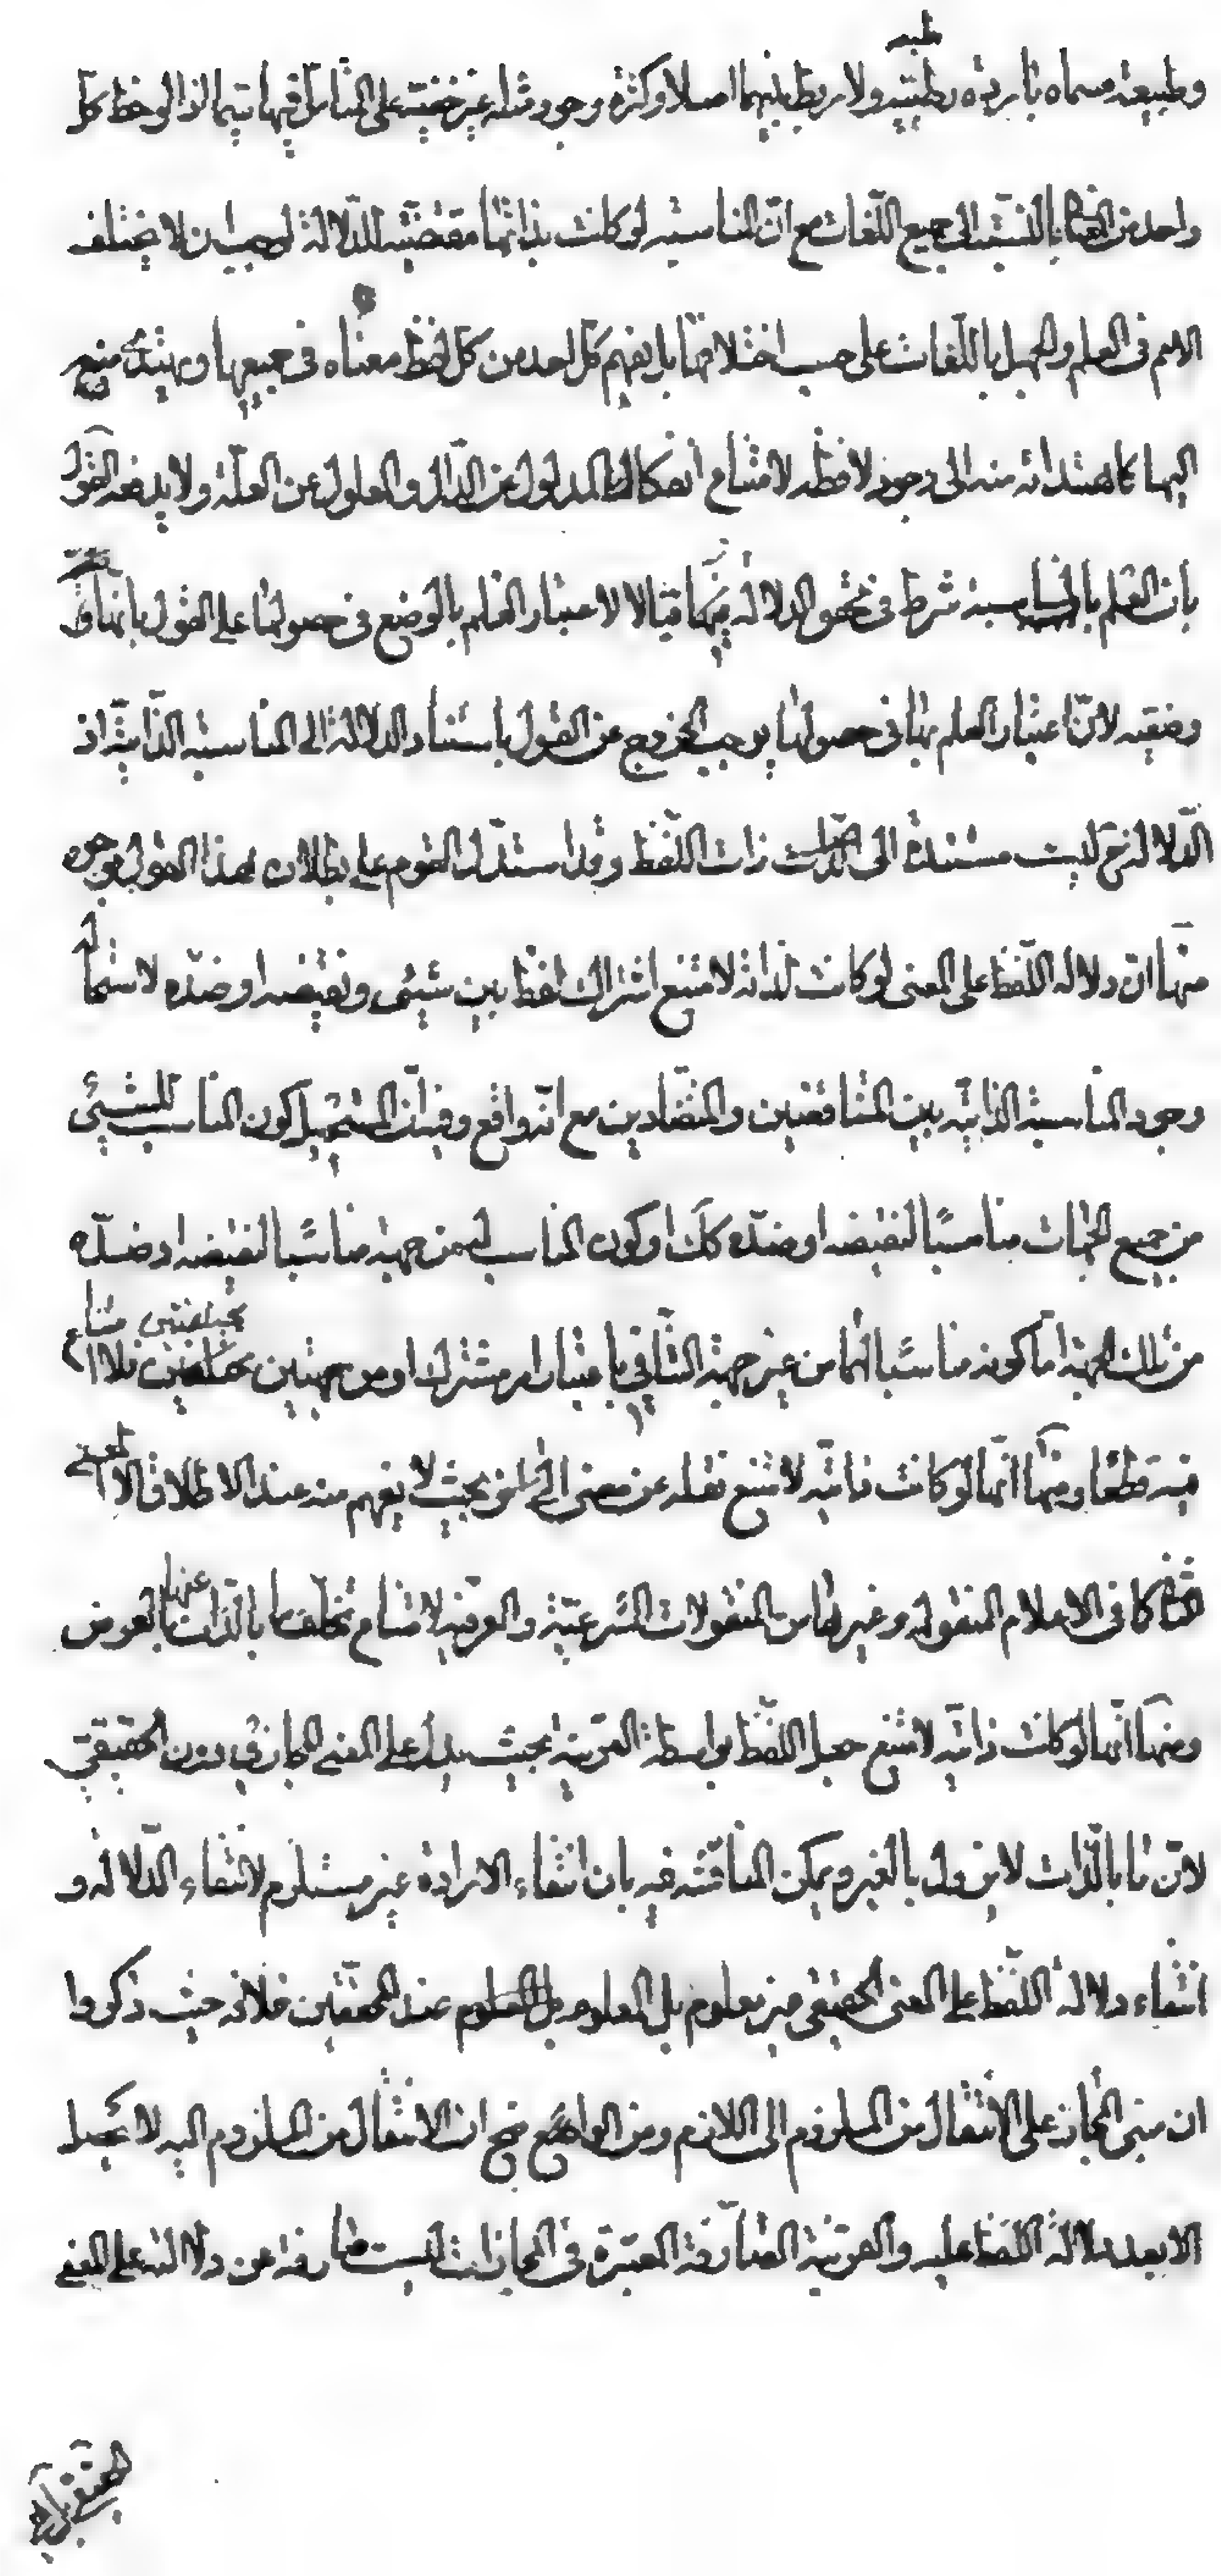 وطبيعة مسماه باردة رطبة ولا ربط بينهما اصلا وكثرة وجود مثله غير خفية على المتأمل فيها سيما اذا لوحظ كل
واحد من اللغات بالنسبة الى جميع اللغات مع انّ المناسبة لو كانت بذاتها مقتضية للدلالة لوجب ان لا يختلف
الامم فى العلم والجهل باللغات على حسب اختلافها بل يفهم كل احد من كل لفظ معناه فى جميعها ويهتدى منه
اليها كاهتدائه منه الى وجود لافظه لامتناع انفكاك المدلول عن الدليل والمعلول عن العلّة ولا يدفعه القول
بان العلم بالمناسبة شرط فى تحقق الدلالة فيها قبالا لاعتبار العلم بالوضع فى حصولها على القول بانها
وضعيه لانّ اعتبار العلم بها فى حصولها يوجب الخروج عن القول باستناد الدلالة الى المناسبة الذاتيّة اذ
الدّلالة ح ليست مستندة الى ذات اللّفظ وقد استدلّ القوم على بطلان هذا القول بوجوه
منها انّ دلالة اللّفظ على المعنى لو كانت لذاته لامتنع اشتراك لفظ بين شيئ ونقيضه او ضدّه لاستحالة
وجود المناسبة الذاتيّه بين المتناقضين والمتضادين مع انّه واقع وفيه انّ المستحيل كون المناسب للشيئ
من جميع الجهات مناسبًا لنقيضه او ضدّه كلّ او كون المناسب له من جهة مناسبًا لنقيضه او ضدّه
من تلك الجهة امّا كونه مناسبًا لهما من غير جهة التنافي باعتبار امر مشترك او من جهتين مختلفتين فلا امتناع
فيه قطعًا ومنها انّها لو كانت ذاتيّه لامتنع نقله عن معنى الى اخر بحيث لا يفهم منه عند الاطلاق الا المعنى
الثانى كما فى الاعلام المنقوله وغيرها من المنقولات الشرعيّة والعرفيه لامتناع تخلّف ما بالذّات عنها بالعرض
ومنها انّها لو كانت ذاتيّه لامتنع جعل اللّفظ بواسطة القرينة بحيث يدل على المعنى المجازي دون الحقيقي
لانّ ما بالذّات لا يزول بالغير ويمكن المناقشه فيه بان انتفاء الارادة غير مستلزم لانتفاء الدّلالة و
انتفاء دلالة اللّفظ على المعنى الحقيقى غير معلوم بل المعلوم عند المحققين خلافه حيث ذكروا
ان مبنى المجاز على الانتقال من الملزوم الى اللازم ومن الواضح ان الانتقال من الملزوم اليه لا يحصل
الا بعد دلالة اللّفظ عليه والقرينة الصّارفة المعتبرة فى المجازات ليست صارفة عن دلالته على المعنى